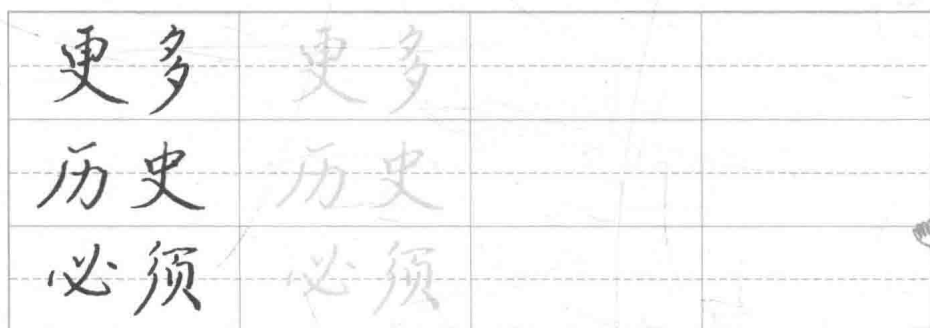 更多 更多
历史 历史
必须 必须